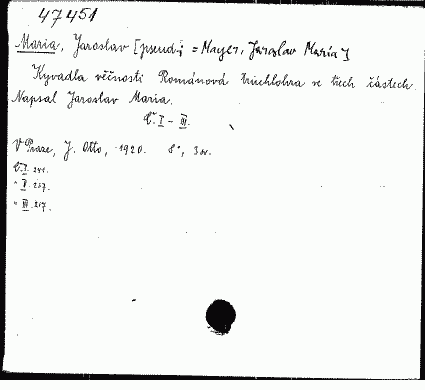 47451
Maria, Jaroslav [pseud.; = Mayer, Jaroslav Maria]
Kyvadla věčnosti Románová truchlohra ve třech částech.
Napsal Jaroslav Maria.
Č. I - III.
V Praze, J. Otto, 1920. 8°, 3 sv.
Č. I. 241.
" II. 237.
" III. 217.